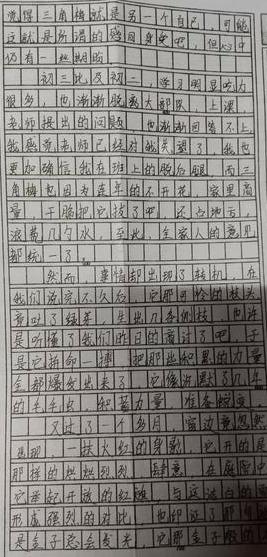 觉得三角梅就是另一个自己，可能
这就是所谓的感同身受吧，但心中
仍有一丝期盼
初三比及初二，学习明显吃力
很多，也渐渐脱离大部队，上课，
老师提出的问题，也渐渐回答不上，
我感觉老师已经对我失望了，我也
更加确信我在班上的脱后腿，而三
角梅也因为连年的不开花，家里商
量，干脆把它拔了吧，还占地方，
浪费几勺水，至此，全家人的意见
都统一了。
然而，事情却出现了转机，在
我们说完不久后，它那可怜的枝头
竟吐了绿芽，生出几条侧枝，也许
是听懂了我们昨日的商讨了吧，于
是它拼命一搏，把那些积累的力量
全都爆发出来了，它像沉默了几年
的毛毛虫，积蓄力量，准备蜕变，
又过了一个多月，窗边竟忽然
出现一抹大红的身影，它开的是
那样的烘烘烈烈，肆意，在庭院中
它举好开放的红，与这洁白的
形成强烈的对比，也印证了那句
是金子总会发光，它那金子般的